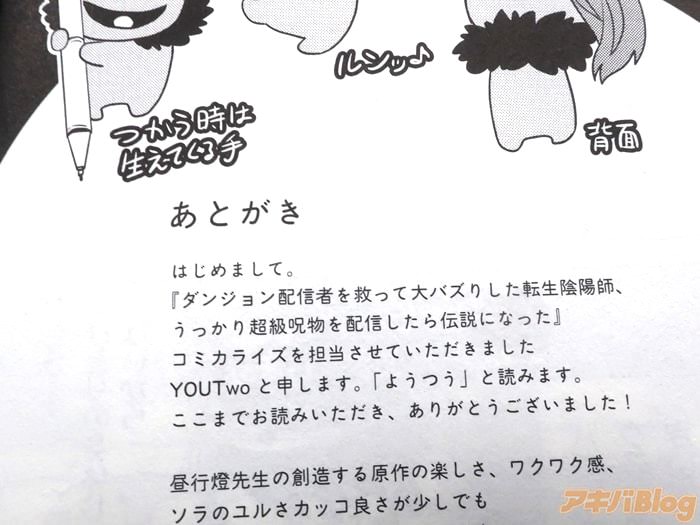 ルンッ♪
つかう時は
生えてくる手
背面
あとがき
はじめまして。
『ダンジョン配信者を救って大バズりした転生陰陽師、
うっかり超級呪物を配信したら伝説になった』
コミカライズを担当させていただきました
YOUTwoと申します。「ようつう」と読みます。
ここまでお読みいただき、ありがとうございました！
昼行燈先生の創造する原作の楽しさ、ワクワク感、
ソラのユルさカッコ良さが少しでも
アキバBlog